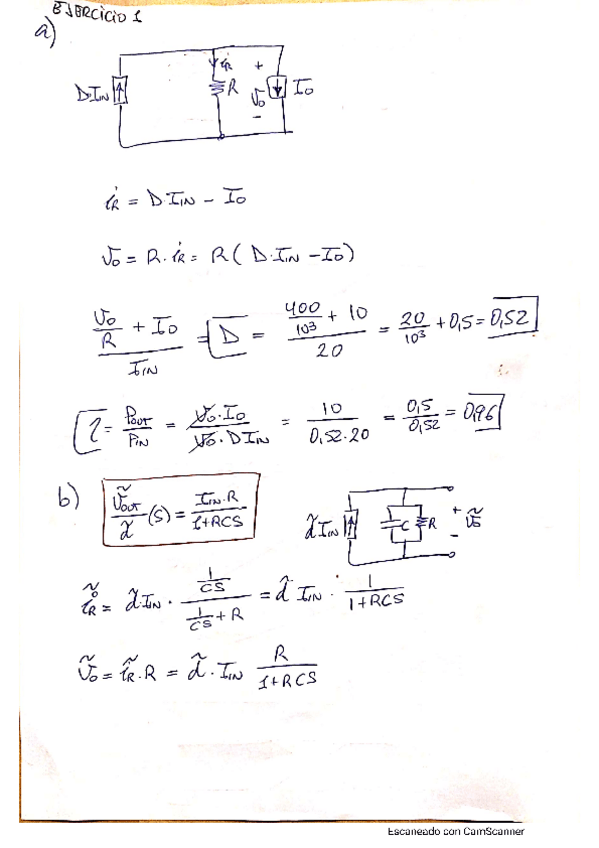 EJERCICIO 1
a)
D·IIN
iR
R
+
Vo
-
Io
iR = D·IIN - Io
Vo = R·iR = R(D·IIN - Io)
(Vo/R + Io)/IIN = D = (400/10³ + 10)/20 = 20/10³ + 0,5 = 0,52
η = Pout/PIN = Vo·Io/Vo·DIIN = 10/0,52·20 = 0,5/0,52 = 0,96
b)
ṽout/d̃ (s) = IIN·R/1+RCS
d̃ IIN
C
R
+
ṽo
-
ĩR = d̃ IIN · (1/CS)/(1/CS + R) = d̂ IIN · 1/1+RCS
ṽo = ĩR·R = d̃·IIN R/1+RCS
Escaneado con CamScanner